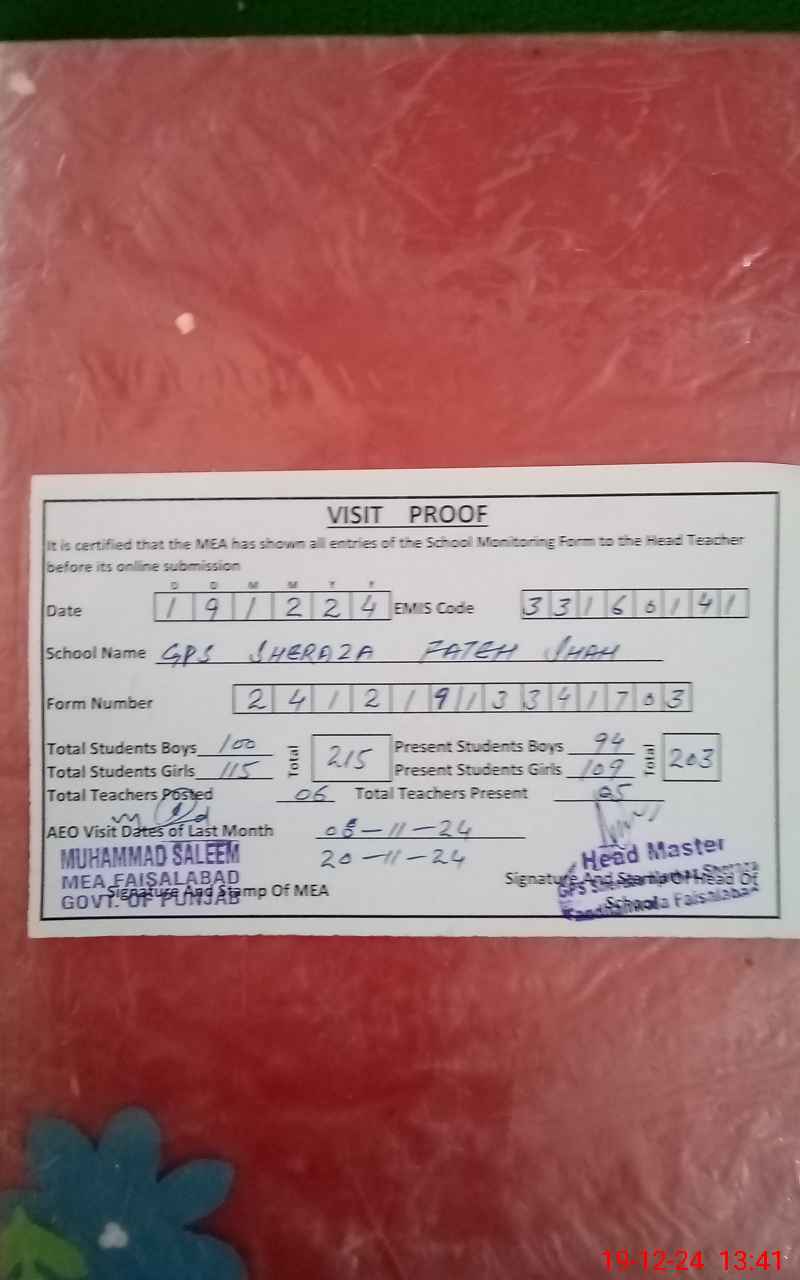 VISIT PROOF
It is certified that the MEA has shown all entries of the School Monitoring Form to the Head Teacher
before its online submission
D D M M Y Y
Date 191224 EMIS Code 33160141
School Name GPS SHERAZA FATEH SHAH
Form Number 241219133341703
Total Students Boys 100 Total 215 Present Students Boys 94 Total 203
Total Students Girls 115 Present Students Girls 109
Total Teachers Posted 06 Total Teachers Present 05
AEO Visit Dates of Last Month 06-11-24
20-11-24
MUHAMMAD SALEEM
MEA FAISALABAD
GOVT. OF PUNJAB
Signature And Stamp Of MEA
Head Master
Signature And Stamp Of Head Of
School
Faisalabad
19-12-24 13:41